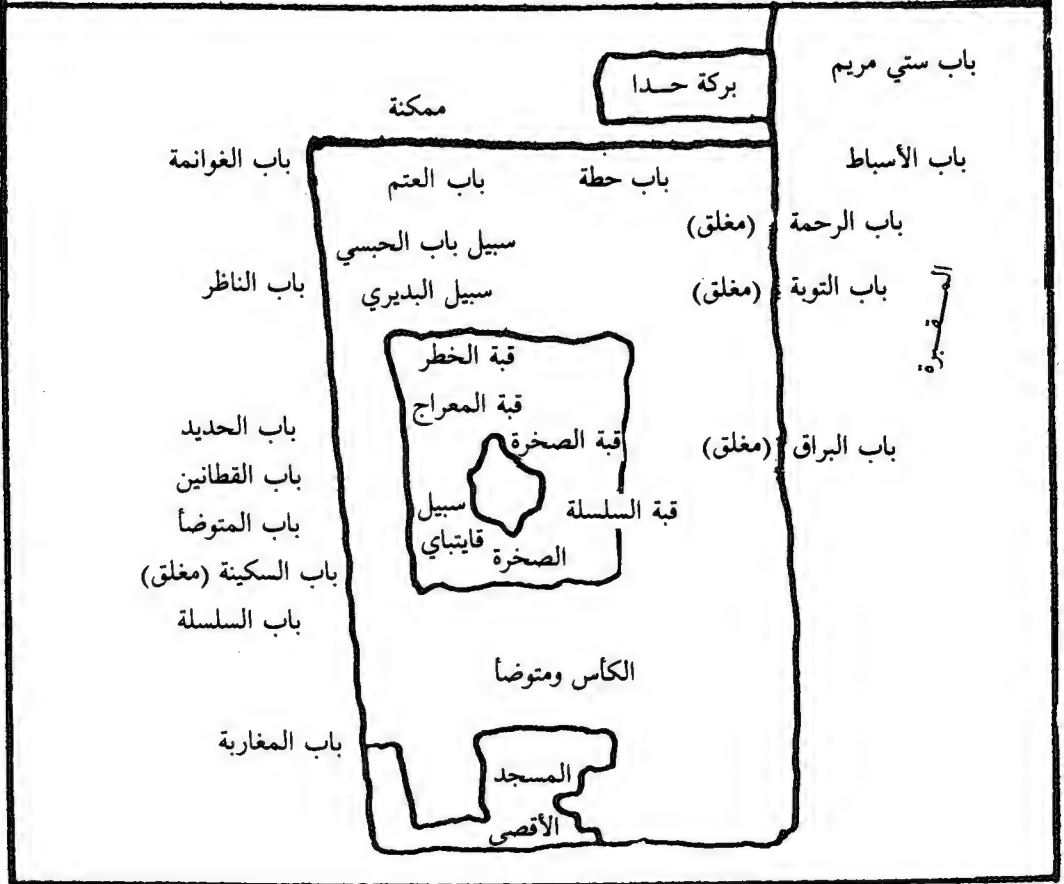 باب ستي مريم
بركة حـدا
ممكنة
باب الأسباط
باب الغوانمة
باب حطة
باب العتم
باب الرحمة (مغلق)
سبيل باب الحبسي
باب التوبة (مغلق)
سبيل البديري
باب الناظر
المقبرة
قبة الخطر
قبة المعراج
باب الحديد
قبة الصخرة
باب البراق (مغلق)
باب القطانين
قبة السلسلة
سبيل
قايتباي
باب المتوضأ
الصخرة
باب السكينة (مغلق)
باب السلسلة
الكأس ومتوضأ
باب المغاربة
المسجد
الأقصى